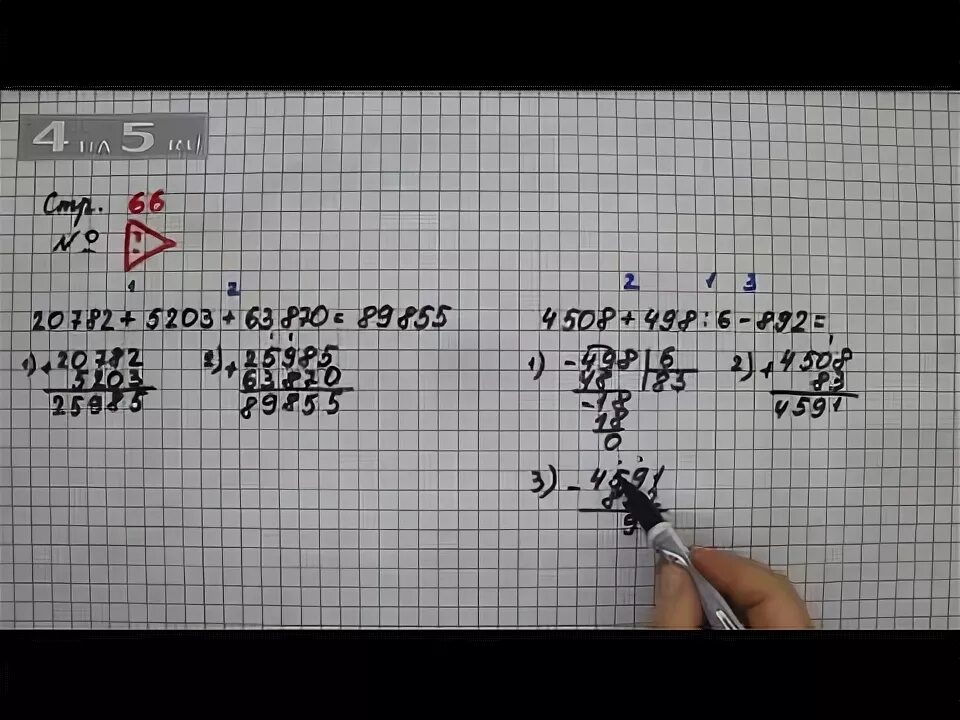 4 на 5
Стр. 66
№ !
1 2
20782 + 5203 + 63870 = 89855
1) + 20782
5203
25985
2) + 25985
63870
89855
2 1 3
4508 + 498 : 6 - 892 =
1) - 498 | 6
48 | 83
- 18
18
0
2) + 4508
83
4591
3) - 4591
8
9